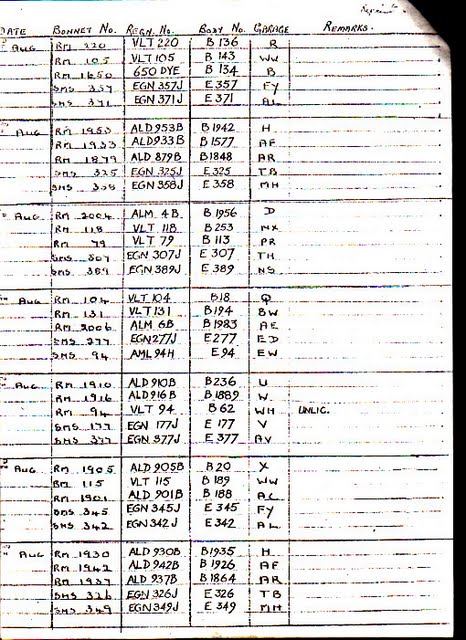 DATE BONNET No. REGN. No. BODY No. GARAGE REMARKS.
Aug RM 220 VLT 220 B 136 R
RM 105 VLT 105 B 143 WW
RM 1650 650 DYE B 134 B
SMS 357 EGN 357J E 357 FY
SMS 371 EGN 371J E 371 AL
Aug RM 1953 ALD 953B B 1942 H
RM 1933 ALD 933B B 1577 AF
RM 1879 ALD 879B B 1848 AR
SMS 325 EGN 325J E 325 TB
SMS 358 EGN 358J E 358 MH
Aug RM 2004 ALM 4B B 1956 D
RM 118 VLT 118 B 253 NX
RM 79 VLT 79 B 113 PR
SMS 307 EGN 307J E 307 TH
SMS 389 EGN 389J E 389 NS
Aug RM 104 VLT 104 B 18 Q
RM 131 VLT 131 B 194 BW
RM 2006 ALM 6B B 1983 AE
SMS 277 EGN 277J E 277 ED
SMS 94 AML 94H E 94 EW
Aug RM 1910 ALD 910B B 236 U
RM 1916 ALD 916B B 1889 W
RM 94 VLT 94 B 62 WH UNLIC.
SMS 177 EGN 177J E 177 V
SMS 377 EGN 377J E 377 AV
Aug RM 1905 ALD 905B B 20 X
RM 115 VLT 115 B 189 WW
RM 1901 ALD 901B B 188 AC
SMS 345 EGN 345J E 345 FY
SMS 342 EGN 342J E 342 AL
Aug RM 1930 ALD 930B B 1935 H
RM 1942 ALD 942B B 1926 AF
RM 1937 ALD 937B B 1864 AR
SMS 326 EGN 326J E 326 TB
SMS 349 EGN 349J E 349 MH